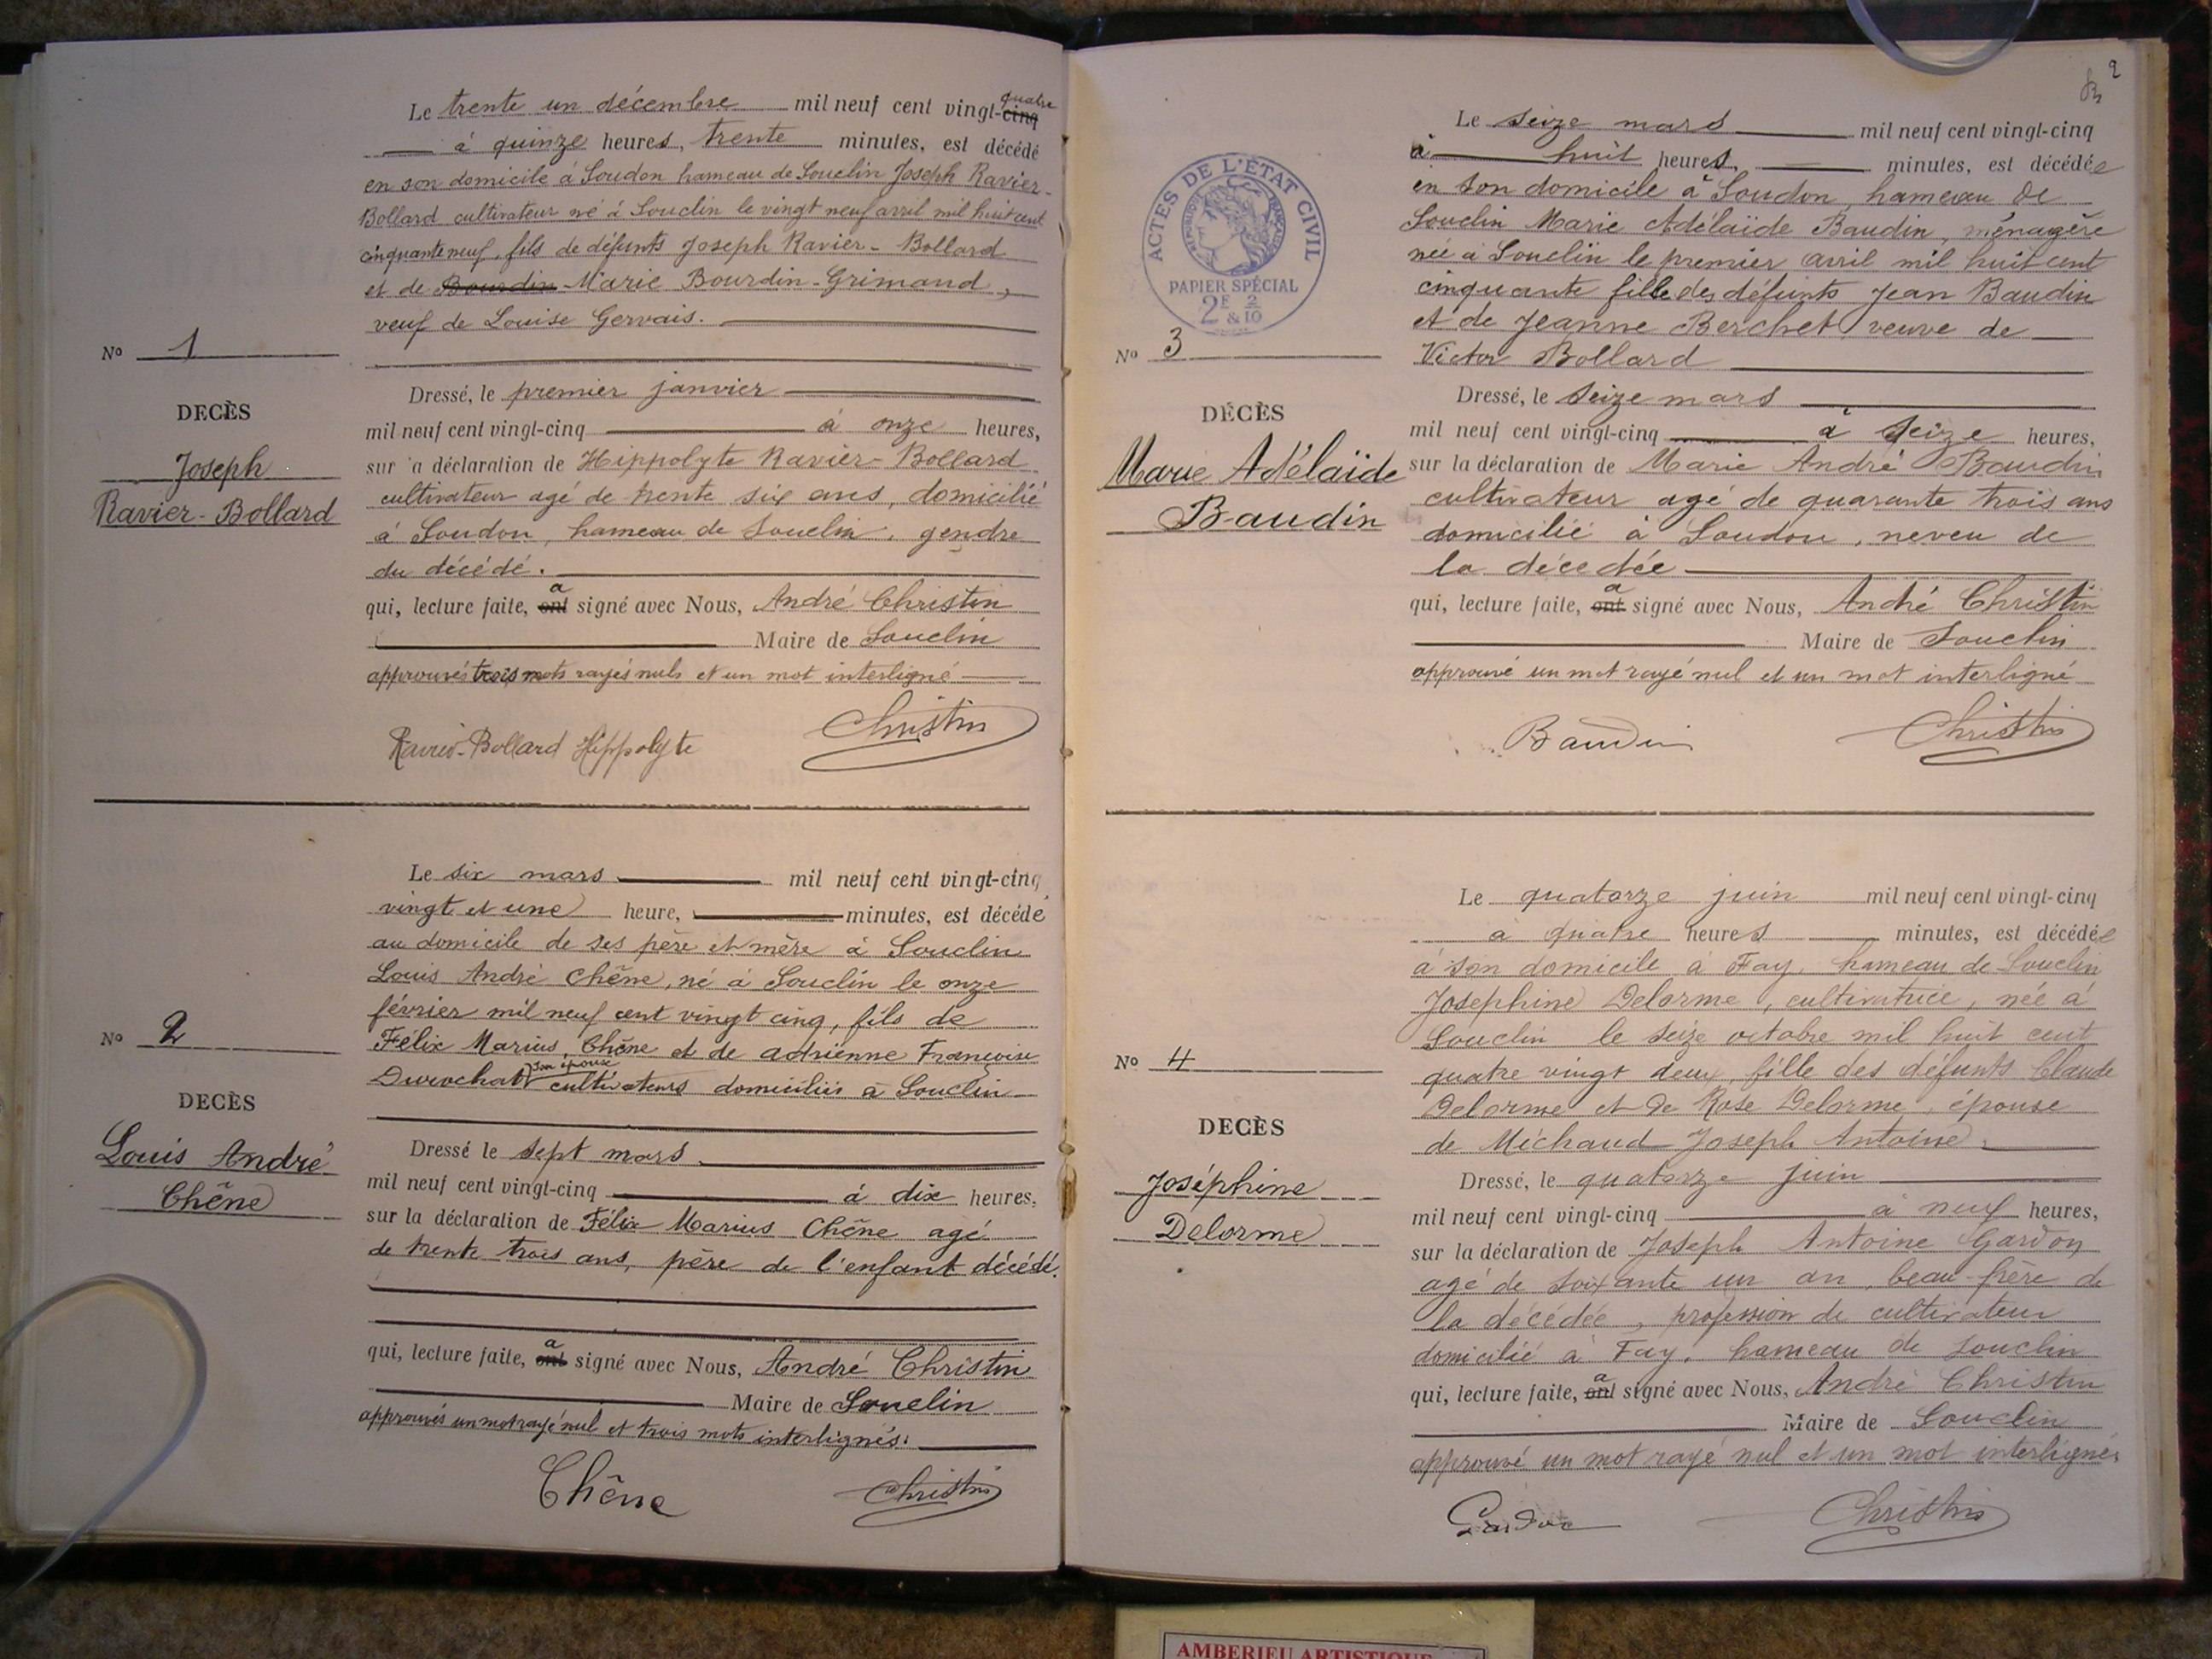 Le trente un décembre mil neuf cent vingt-cinq quatre
à quinze heures, trente minutes, est décédé
en son domicile à Soudon hameau de Souclin Joseph Ravier-
Bollard cultivateur né à Souclin le vingt neuf avril mil huit cent
cinquante neuf, fils de défunts Joseph Ravier-Bollard
et de Bourdin Marie Bourdin-Grimaud,
veuf de Louise Gervais.
No 1
DECÈS
Joseph
Ravier-Bollard
Dressé, le premier janvier
mil neuf cent vingt-cinq à onze heures,
sur a déclaration de Hippolyte Ravier-Bollard
cultivateur agé de trente six ans, domicilié
à Soudon, hameau de Souclin, gendre
du décédé.
qui, lecture faite, ont a signé avec Nous, André Christin
Maire de Souclin
approuvés trois mots rayés nuls et un mot interligné
Ravier-Bollard Hippolyte
Christin
Le six mars mil neuf cent vingt-cinq
vingt et une heure, minutes, est décédé
au domicile de ses père et mère à Souclin
Louis André Chêne, né à Souclin le onze
février mil neuf cent vingt cinq, fils de
Félix Marius, Chêne et de adrienne Françoise
Durochat son épouse cultivateurs domiciliés à Souclin
No 2
DECÈS
Louis André
Chêne
Dressé le sept mars
mil neuf cent vingt-cinq à dix heures,
sur la déclaration de Félix Marius Chêne agé
de trente trois ans, père de l'enfant décédé.
qui, lecture faite, ont a signé avec Nous, André Christin
Maire de Souclin
approuvés un mot rayé nul et trois mots interlignés.
Chêne
Christin
2
ACTES DE L'ÉTAT CIVIL
RÉPUBLIQUE FRANÇAISE
PAPIER SPÉCIAL
2F & 2/10
Le seize mars mil neuf cent vingt-cinq
à huit heures, minutes, est décédée
en son domicile à Soudon, hameau de
Souclin Marie Adélaïde Baudin, ménagère
née à Souclin le premier avril mil huit cent
cinquante fille des défunts Jean Baudin
et de Jeanne Berchet, veuve de
Victor Bollard
No 3
DÉCÈS
Marie Adélaïde
Baudin
Dressé, le seize mars
mil neuf cent vingt-cinq à seize heures,
sur la déclaration de Marie André Baudin
cultivateur agé de quarante trois ans
domicilié à Soudon, neveu de
la décédée
qui, lecture faite, ont a signé avec Nous, André Christin
Maire de Souclin
approuvé un mot rayé nul et un mot interligné
Baudin
Christin
Le quatorze juin mil neuf cent vingt-cinq
à quatre heures minutes, est décédée
à son domicile à Fay, hameau de Souclin
Joséphine Delorme, cultivatrice, née à
Souclin le seize octobre mil huit cent
quatre vingt deux, fille des défunts Claude
Delorme et de Rose Delorme, épouse
de Michaud Joseph Antoine
No 4
DECÈS
Joséphine
Delorme
Dressé, le quatorze juin
mil neuf cent vingt-cinq à neuf heures,
sur la déclaration de Joseph Antoine Gardon
agé de soixante un an, beau-frère de
la décédée, profession de cultivateur
domicilié à Fay, hameau de Souclin
qui, lecture faite, ont a signé avec Nous, André Christin
Maire de Souclin
approuvé un mot rayé nul et un mot interlignés
Gardon
Christin
AMBERIEU ARTISTIQUE